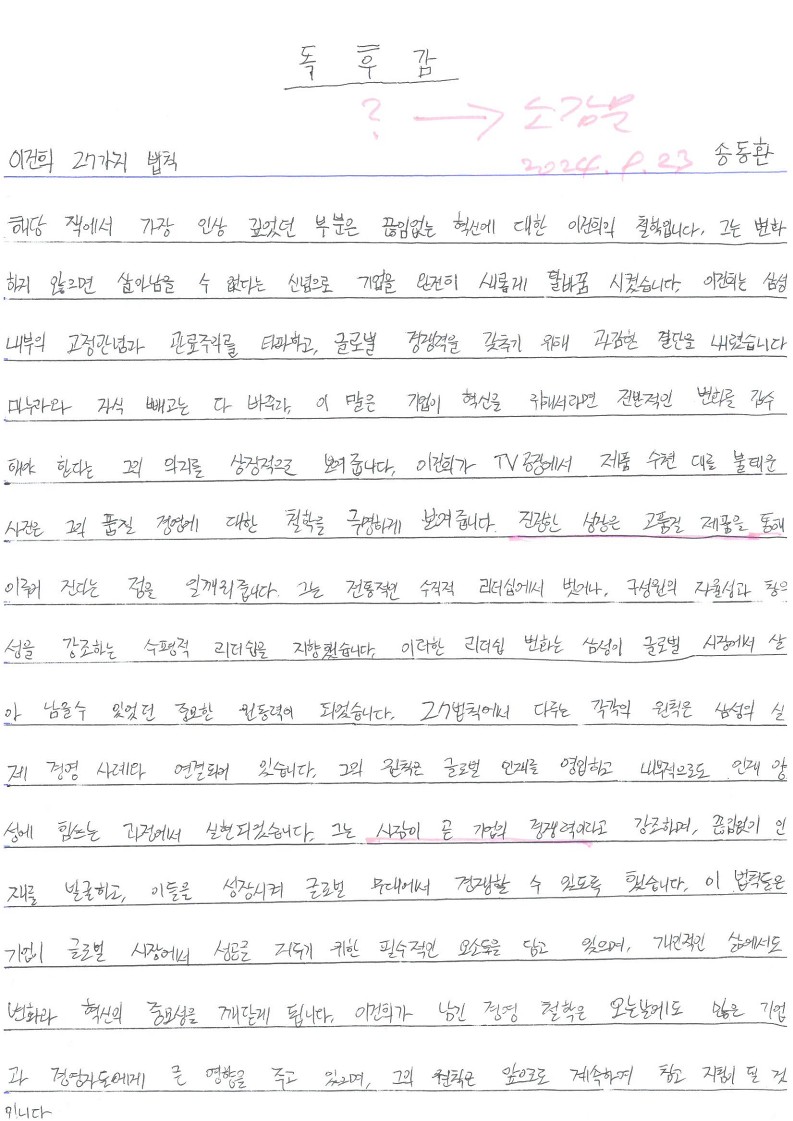 독 후 감
? → 소감문
이건희 27가지 법칙 2024. 9. 23 송동환
해당 책에서 가장 인상 깊었던 부분은 끊임없는 혁신에 대한 이건희의 철학입니다. 그는 변화
하지 않으면 살아남을 수 없다는 신념으로 기업을 완전히 새롭게 탈바꿈 시켰습니다. 이건희는 삼성
내부의 고정관념과 관료주의를 타파하고, 글로벌 경쟁력을 갖추기 위해 과감한 결단을 내렸습니다
마누라와 자식 빼고는 다 바꾸라, 이 말은 기업이 혁신을 위해서라면 전반적인 변화를 감수
해야 한다는 그의 의지를 상징적으로 보여 줍니다. 이건희가 TV공장에서 제품 수천 대를 불태운
사건은 그의 품질 경영에 대한 철학을 극명하게 보여줍니다. 진정한 성장은 고품질 제품을 통해
이루어 진다는 점을 일깨워줍니다. 그는 전통적인 수직적 리더십에서 벗어나, 구성원의 자율성과 창의
성을 강조하는 수평적 리더쉽을 지향했습니다. 이러한 리더쉽 변화는 삼성이 글로벌 시장에서 살
아 남을수 있었던 중요한 원동력이 되었습니다. 27법칙에서 다루는 각각의 원칙은 삼성의 실
제 경영 사례와 연결되어 있습니다. 그의 원칙은 글로벌 인재를 영입하고 내부적으로도 인재 양
성에 힘쓰는 과정에서 실현되었습니다. 그는 사람이 곧 기업의 경쟁력이라고 강조하며, 끊임없이 인
재를 발굴하고, 이들을 성장시켜 글로벌 무대에서 경쟁할 수 있도록 했습니다. 이 법칙들은
기업이 글로벌 시장에서 성공을 거두기 위한 필수적인 요소들을 담고 있으며, 개인적인 삶에서도
변화와 혁신의 중요성을 깨닫게 됩니다. 이건희가 남긴 경영 철학은 오늘날에도 많은 기업
과 경영자들에게 큰 영향을 주고 있으며, 그의 원칙은 앞으로도 계속하여 참고 지침이 될 것
입니다